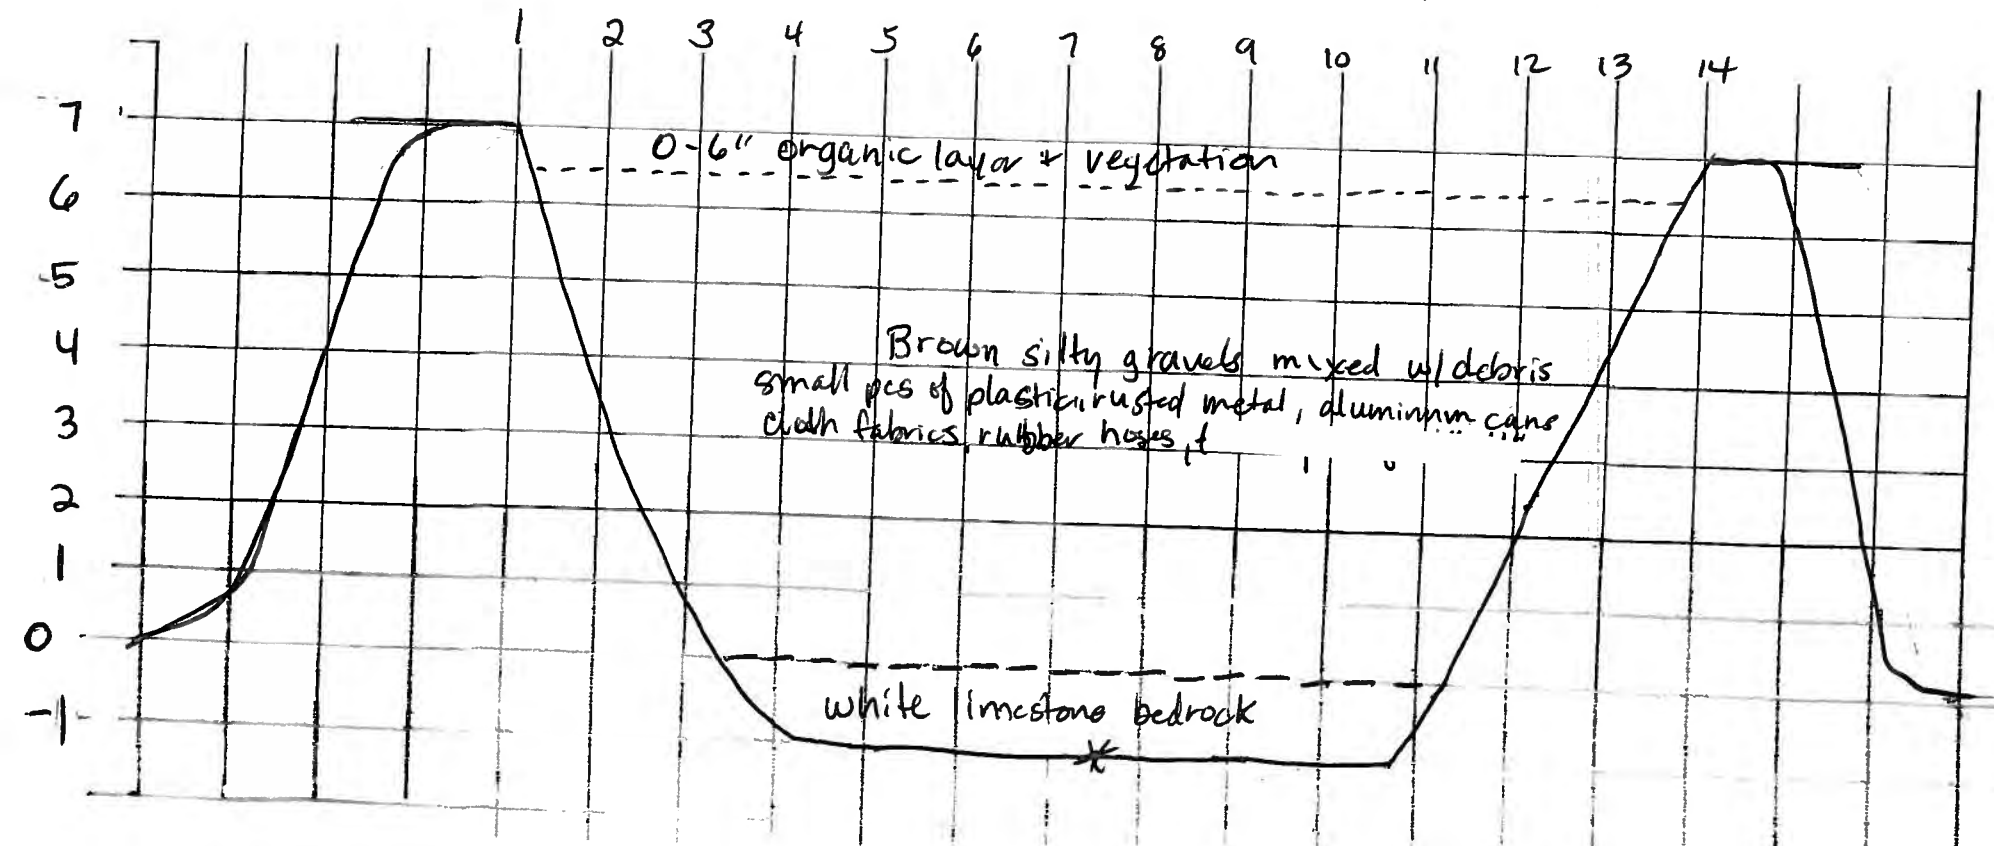 1 2 3 4 5 6 7 8 9 10 11 12 13 14
7
0-6" organic layer + vegetation
6
5
4
Brown silty gravels mixed w/debris
small pcs of plastic, rusted metal, aluminum cans
3
cloth fabrics, rubber hoses,
2
1
0
-1
white limestone bedrock